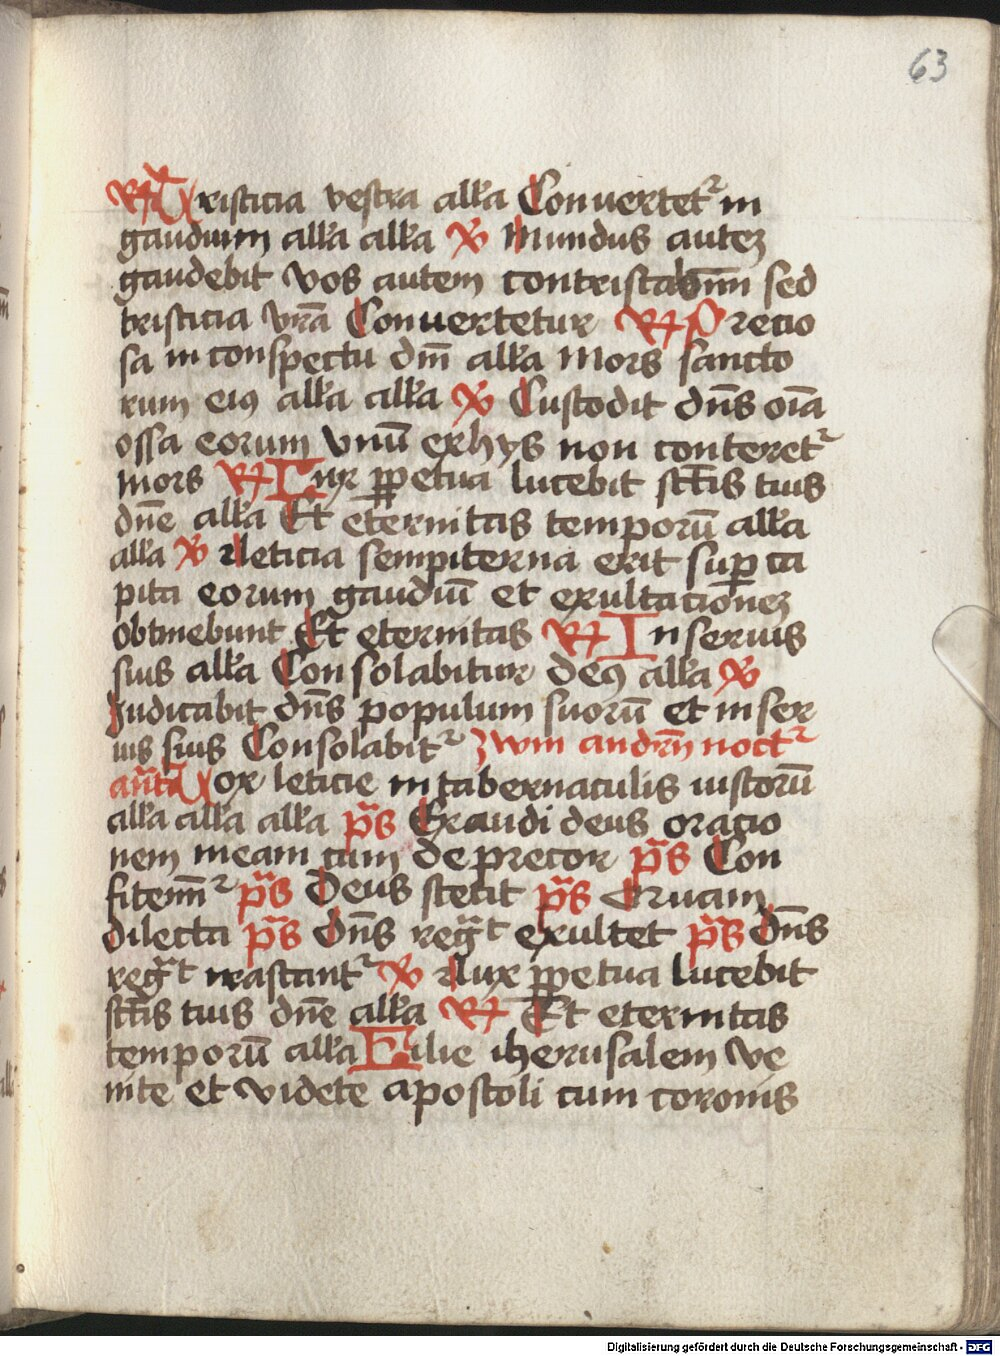 63
R⁊ Tristicia vestra all'a Conuertet᷑ in
gaudium all'a all'a V̷ Mundus autez
gaudebit vos autem contristabimī sed
tristicia vr̄a Conuertetur R⁊ Precio
sa in conspectu dn̄i all'a Mors sancto
rum eiꝰ all'a all'a V̷ Custodit dn̄s oīa
ossa eorum vnū ex hys non conteret᷑
mors R⁊ Lux ꝑpetua lucebit sc̄tis tuis
dn̄e all'a Et eternitas temporū all'a
all'a V̷ leticia sempiterna erit suꝑ ca
pita eorum gaudiū et exultacionez
obtinebunt Et eternitas R⁊ In seruis
suis all'a Consolabitur deꝰ all'a V̷
Judicabit dn̄s populum suorū et in ser
uis suis Consolabit᷑ zwm andrn̄ noct᷑
an̄ta Vox leticie in tabernaculis iustorū
all'a all'a all'a ps̄ Exaudi deus oracio
nem meam cum deprecor ps̄ Con
fitemr̄ ps̄ Deus stetit ps̄ Quam
dilecta ps̄ dn̄s regt̄ exultet ps̄ dn̄s
regt̄ irascant᷑ V̷ lux ꝑpetua lucebit
sc̄tis tuis dn̄e all'a R⁊ Et eternitas
temporū all'a Filie iherusalem ve
nite et videte apostoli cum coronis
Digitalisierung gefördert durch die Deutsche Forschungsgemeinschaft - DFG